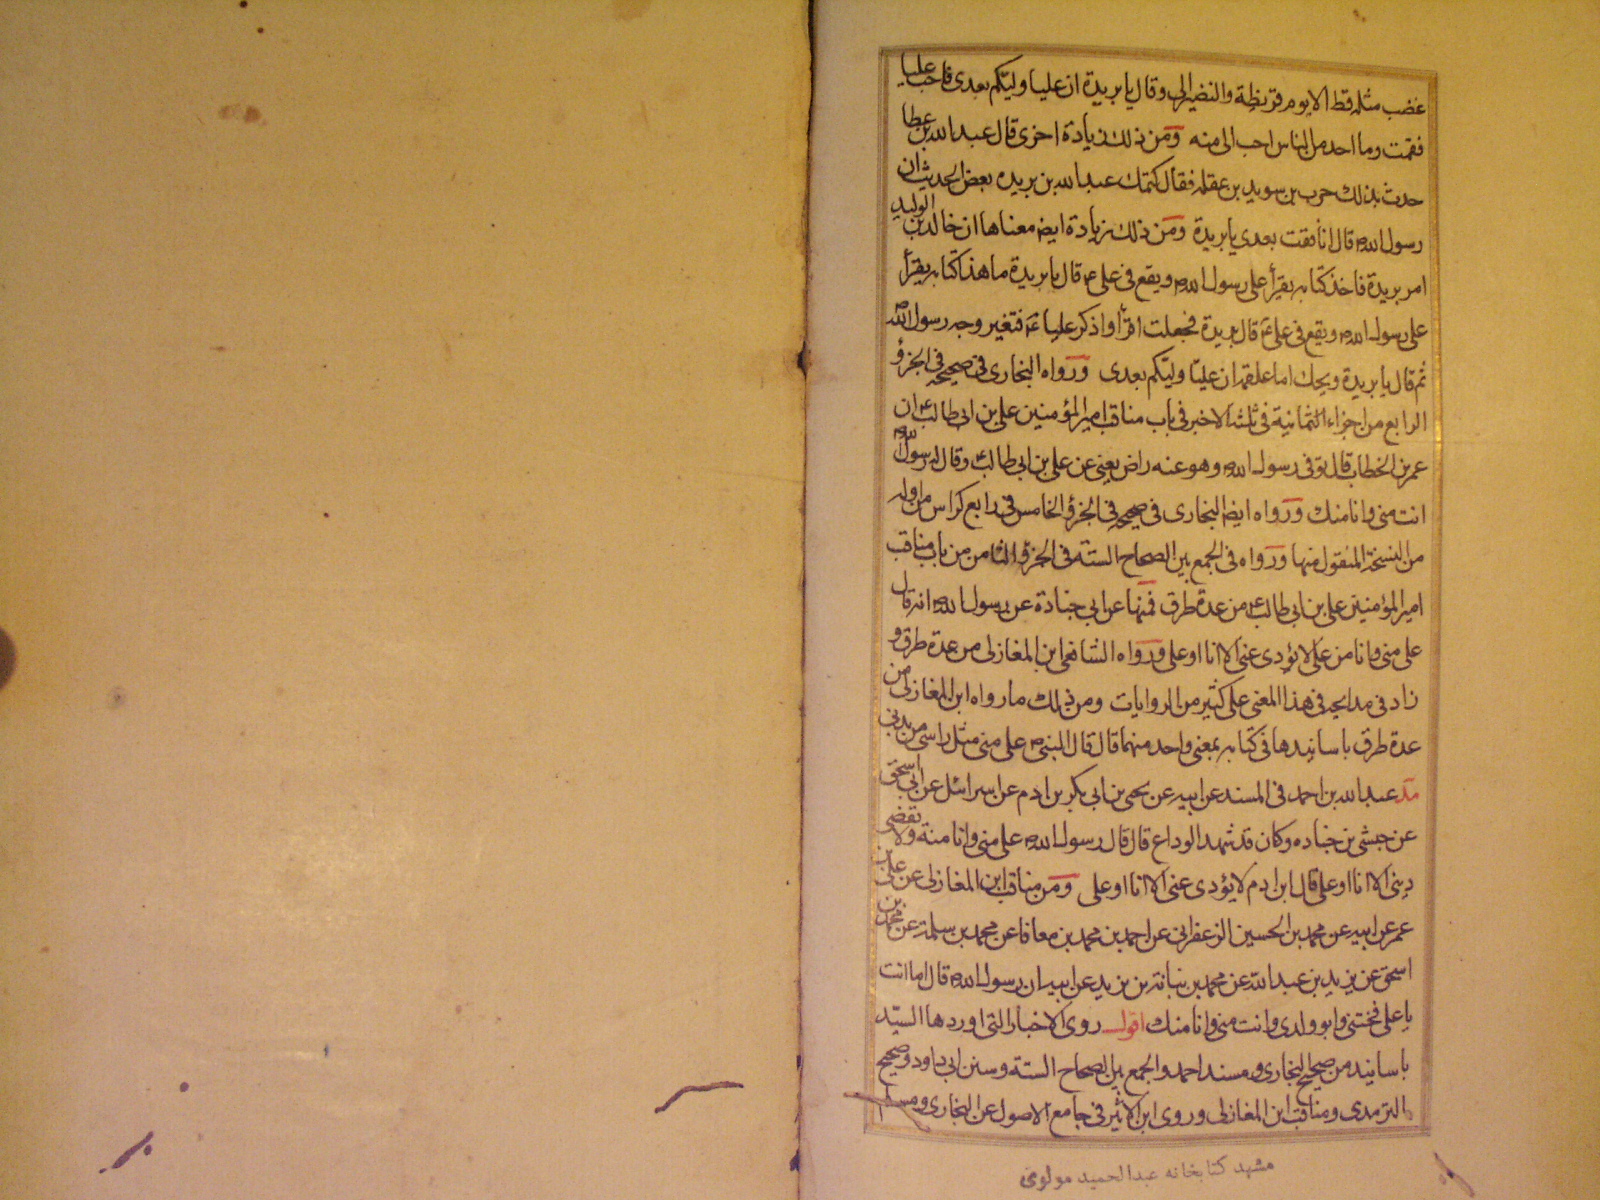 غضب مثله قط الا يوم قريظة والنضير الى وقال يا بريدة ان عليا وليّكم بعدى فاحب عليا
فقمت وما احد من الناس احب الى منه ومن ذلك زيادة اخرى قال عبد الله بن عطا
حدثت بذلك حرب بن سويد بن عقله فقال كتمك عبد الله بن بريده بعض الحديث ان
رسول الله ص قال انافقت بعدى يا بريدة ومن ذلك زيادة ايض معناها ان خالد بن الوليد
امر بريدة فاخذ كتابه يقرأ على رسول الله ص ويقع فى على ع قال بريدة ما هذا كتابه يقرأ
على رسول الله ص ويقع فى على ع قال بريدة فجعلت اقرأ واذكر عليا ع فتغير وجه رسول الله ص
ثم قال يا بريدة ويحك اما علمت ان عليّا وليّكم بعدى ورواه البخارى فى صحيحه فى الجزؤ
الرابع من اجزاء الثمانية فى ثلثه الاخير فى باب مناقب امير المؤمنين على بن ابى طالب ع ان
عمر بن الخطاب قال توفى رسول الله ص وهو عنه راض يعنى عن على بن ابى طالب ع وقال له رسول الله ص
انت منى وانا منك ورواه ايض البخارى فى صحيحه فى الجزؤ الخامس فى رابع كراس من اوله
من النسخة المنقول منها ورواه فى الجمع بين الصحاح الستة فى الجزؤ الثامن من باب مناقب
امير المؤمنين على بن ابى طالب ع من عدة طرق فمنها عن ابى جنادة عن رسول الله ص انه قال
على منى وانا من على لا يؤدى عنى الا انا او على ورواه الشافعى ابن المغازلى من عدة طرق و
زاد فى مدايحه فى هذا المعنى على كثير من الروايات ومن ذلك ما رواه ابن المغازلى من
عدة طرق باسانيدها فى كتابه بمعنى واحد منهما قال قال النبى ص على منى مثل راسى من بدنى
مد عبد الله بن احمد فى المسند عن ابيه عن يحيى بن ابى بكر بن ادم عن اسرائيل عن ابى اسحق
عن حبشى بن جناده وكان قد شهد الوداع قال قال رسول الله ص على منى وانا منه ولا يقضى
دينى الا انا او على قال ابن ادم لا يؤدى عنى الا انا او على ومن مناقب ابن المغازلى عن على بن
عمر عن ابيه عن محمد بن الحسين الزعفرانى عن احمد بن محمد بن معافا عن محمد بن سلمة عن محمد بن
اسحق عن يزيد بن عبد الله عن محمد بن نباتة بن يزيد عن ابيه ان رسول الله ص قال اما انت
يا على فختنى وابو ولدى وانت منى وانا منك اقول روى الاخبار التى اوردها السيّد
باسانيد من صحيح البخارى ومسند احمد والجمع بين الصحاح الستة وسنن ابى داود وصحيح
الترمذى ومناقب ابن المغازلى وروى ابن الاثير فى جامع الاصول عن البخارى ومسلم
مشهد كتابخانه عبدالحميد مولوى